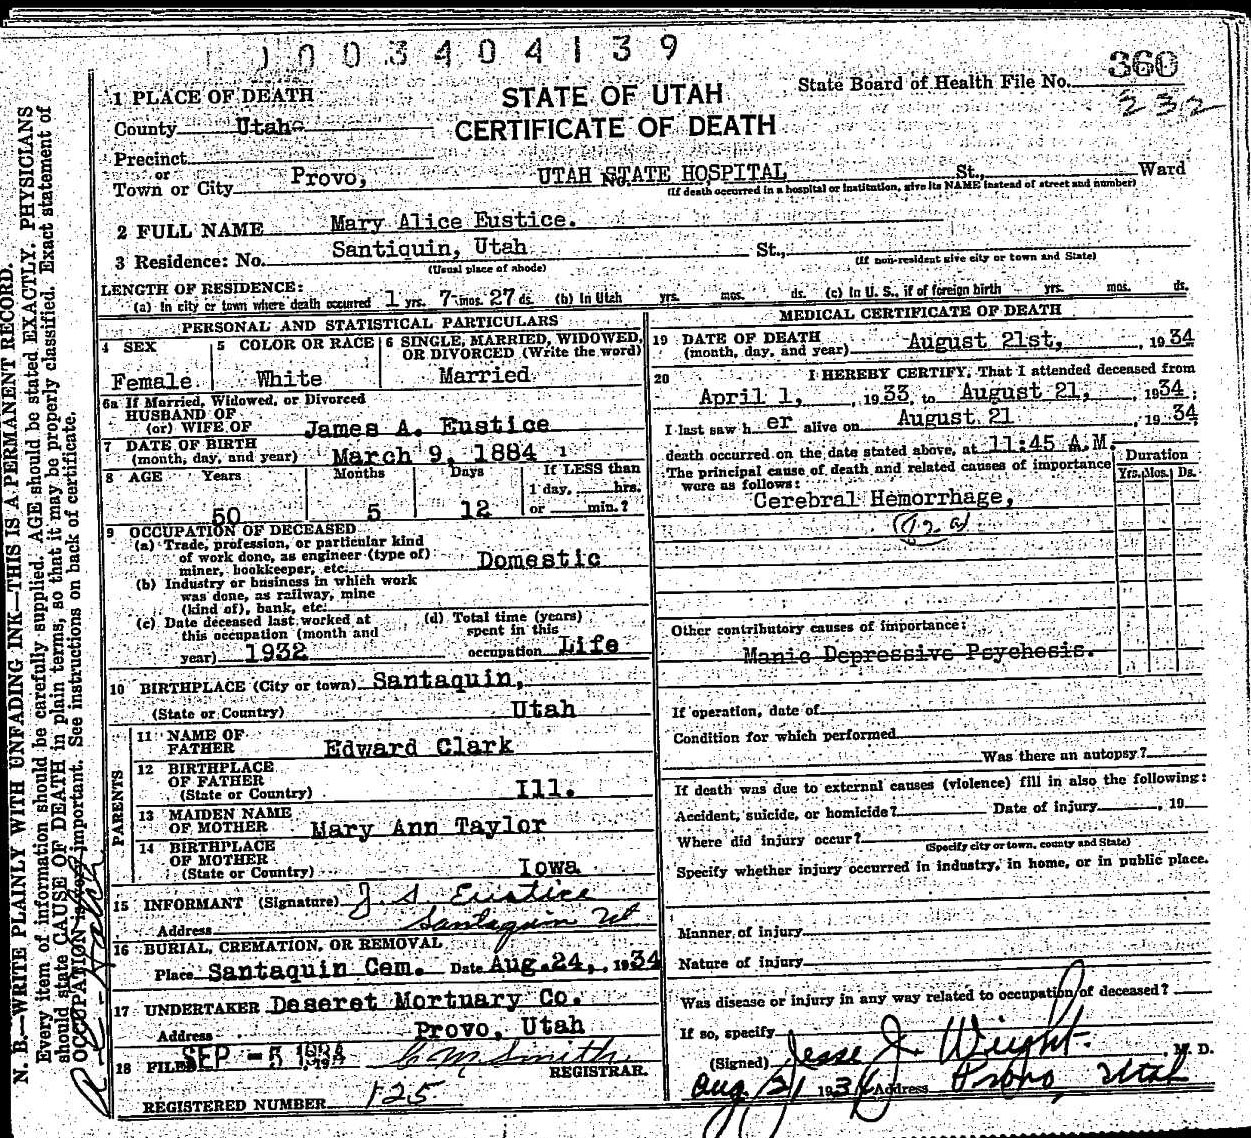 1003404139
STATE OF UTAH
CERTIFICATE OF DEATH
State Board of Health File No. 360
232
1 PLACE OF DEATH
County Utah
Precinct
or
Town or City Provo, No. UTAH STATE HOSPITAL St., Ward
(If death occurred in a hospital or institution, give its NAME instead of street and number)
2 FULL NAME Mary Alice Eustice.
3 Residence: No. Santiquin, Utah St.,
(Usual place of abode) (If non-resident give city or town and State)
LENGTH OF RESIDENCE:
(a) In city or town where death occurred 1 yrs. 7 mos. 27 ds. (b) In Utah yrs. mos. ds. (c) In U. S., if of foreign birth yrs. mos. ds.
PERSONAL AND STATISTICAL PARTICULARS
4 SEX
Female
5 COLOR OR RACE
White
6 SINGLE, MARRIED, WIDOWED,
OR DIVORCED (Write the word)
Married
6a If Married, Widowed, or Divorced
HUSBAND OF
(or) WIFE OF James A. Eustice
7 DATE OF BIRTH
(month, day, and year) March 9, 1884
8 AGE Years Months Days If LESS than
1 day, hrs.
50 5 12 or min.?
9 OCCUPATION OF DECEASED
(a) Trade, profession, or particular kind
of work done, as engineer (type of)
miner, bookkeeper, etc. Domestic
(b) Industry or business in which work
was done, as railway, mine
(kind of), bank, etc.
(c) Date deceased last worked at
this occupation (month and
year) 1932
(d) Total time (years)
spent in this
occupation Life
10 BIRTHPLACE (City or town) Santaquin,
(State or Country) Utah
PARENTS
11 NAME OF
FATHER Edward Clark
12 BIRTHPLACE
OF FATHER
(State or Country) Ill.
13 MAIDEN NAME
OF MOTHER Mary Ann Taylor
14 BIRTHPLACE
OF MOTHER
(State or Country) Iowa
15 INFORMANT (Signature) J. S Eustice
Address Santaquin Ut
16 BURIAL, CREMATION, OR REMOVAL
Place Santaquin Cem. Date Aug. 24, 1934
17 UNDERTAKER Deseret Mortuary Co.
Address Provo, Utah
18 FILED SEP - 5 1934
REGISTRAR.
REGISTERED NUMBER 125
MEDICAL CERTIFICATE OF DEATH
19 DATE OF DEATH
(month, day, and year) August 21st, , 1934
20 I HEREBY CERTIFY, That I attended deceased from
April 1, , 1933, to August 21, , 1934;
I last saw her alive on August 21 , 1934
death occurred on the date stated above, at 11:45 A.M.
The principal cause of death and related causes of importance
were as follows:
Duration
Yrs. Mos. Ds.
Cerebral Hemorrhage,
Other contributory causes of importance:
Manic Depressive Psychosis.
If operation, date of
Condition for which performed
Was there an autopsy?
If death was due to external causes (violence) fill in also the following:
Accident, suicide, or homicide? Date of injury , 19
Where did injury occur?
(Specify city or town, county and State)
Specify whether injury occurred in industry, in home, or in public place.
Manner of injury
Nature of injury
Was disease or injury in any way related to occupation of deceased?
If so, specify
(Signed) Jesse J. Wright. , M. D.
Aug 21 1934 Address Provo, Utah
N. B.—WRITE PLAINLY WITH UNFADING INK—THIS IS A PERMANENT RECORD.
Every item of information should be carefully supplied. AGE should be stated EXACTLY. PHYSICIANS
should state CAUSE OF DEATH in plain terms, so that it may be properly classified. Exact statement of
OCCUPATION is very important. See instructions on back of certificate.